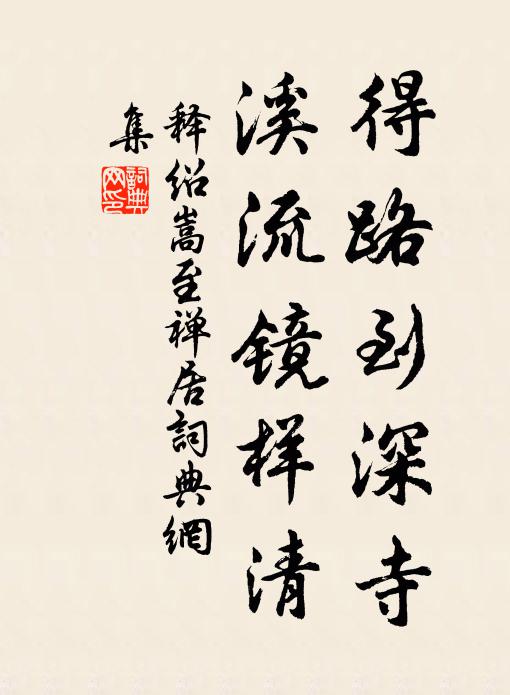 得路到深寺
溪流镜样清
释绍嵩至禅居詞典網
集
詞典
网印